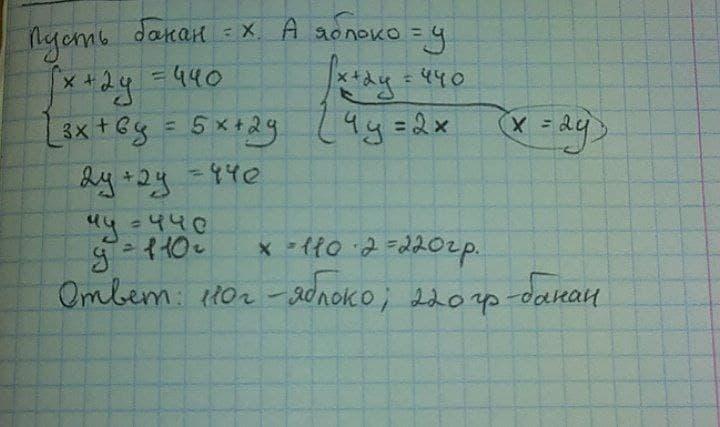 Пусть банан = x. А яблоко = y
x + 2y = 440 x + 2y = 440
3x + 6y = 5x + 2y 4y = 2x x = 2y
2y + 2y = 440
4y = 440
y = 110г x = 110 · 2 = 220гр.
Ответ: 110г – яблоко; 220гр – банан